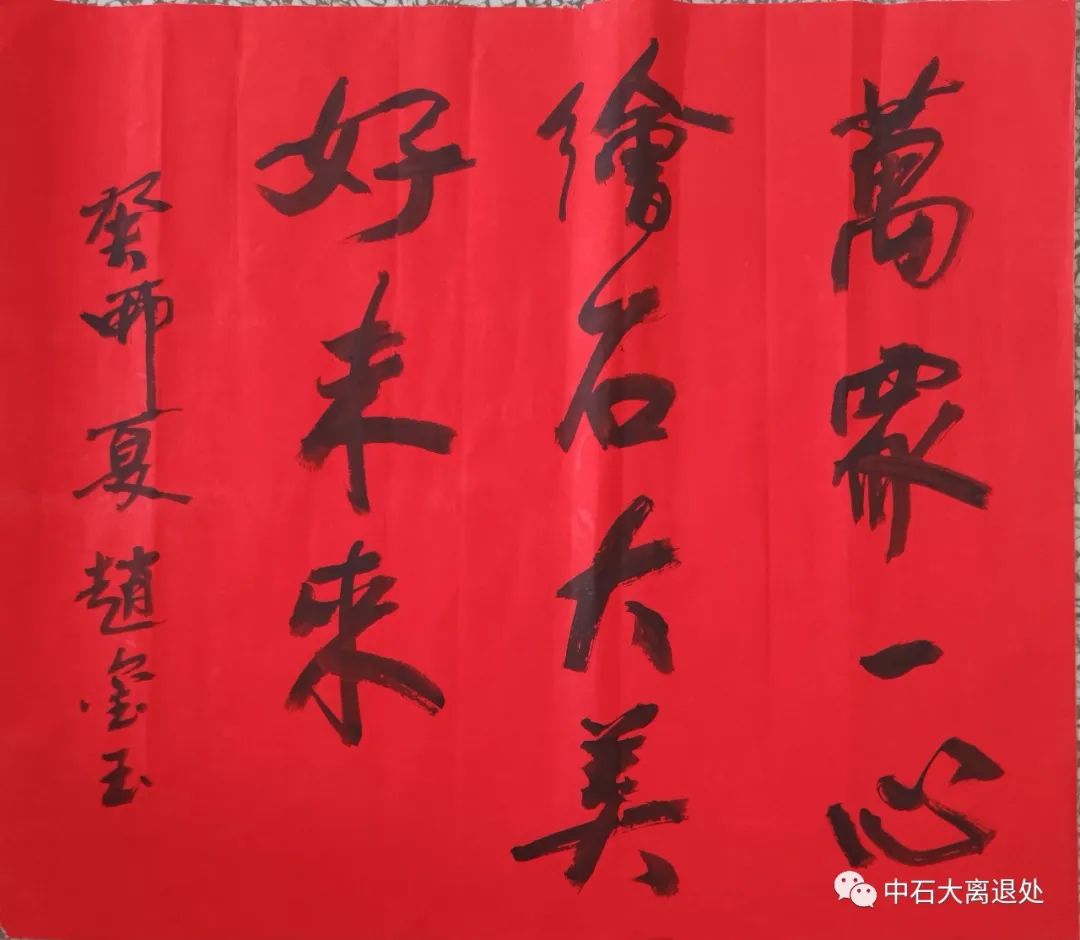 萬眾一心
繪石大美
好未來
癸卯夏 趙金玉
中石大离退处